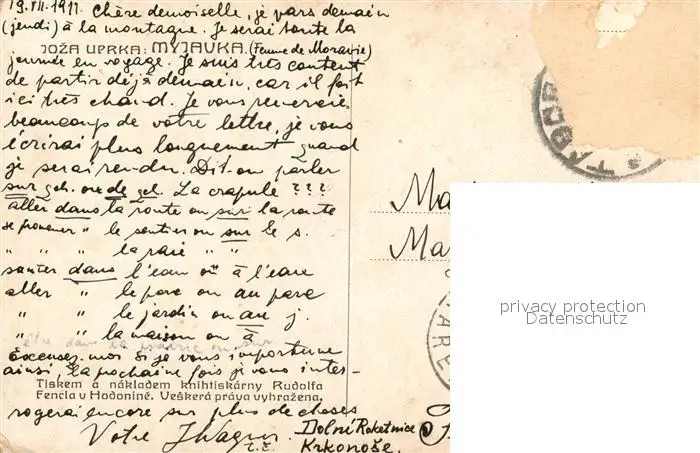 19.VII.1911. Chère demoiselle, je pars demain
(jeudi) à la montagne. Je serai toute la
JOŽA UPRKA: MYJAVKA. (Femme de Moravie)
journée en voyage. Je suis très content
de partir déjà demain, car il fait
ici très chaud. Je vous remercie
beaucoup de votre lettre, je vous
écrirai plus longuement quand
je serai rendu. Dit-on parler
sur qch. ou de qch. La crapule ???
aller dans la route ou sur la route
se promener " le sentier ou sur le s.
" " la " "
sauter dans l'eau ou à l'eau
aller " le parc ou au parc
" " le jardin ou au j.
" " la maison ou à
être dans la ou sur
Excusez-moi si je vous importune
ainsi, la prochaine fois je vous inter-
Tiskem a nákladem knihtiskárny Rudolfa
Fencla v Hodoníně. Veškerá práva vyhražena.
rogerai encore sur plus de choses
Votre JWagner
Dolní Roketnice
Krkonoše.
Ma
Ma
TÁBOR
privacy protection
Datenschutz